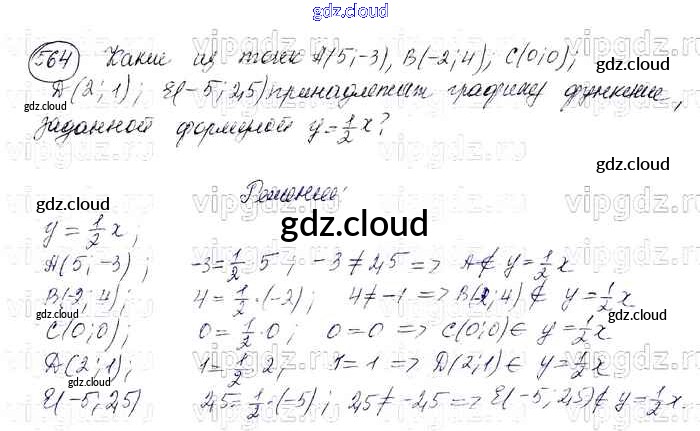 gdz.cloud
564 Какие из точек A(5;-3), B(-2;4); C(0;0);
D(2;1); E(-5;2,5) принадлежат графику функции,
заданной формулой y=1/2x?
gdz.cloud
gdz.cloud
Решение:
gdz.cloud
gdz.cloud
y=1/2x;
A(5;-3); -3=1/2·5; -3≠2,5=> A∉ y=1/2x
B(-2;4); 4=1/2·(-2); 4≠-1=> B(-2;4)∉ y=1/2x
gdz.cloud
gdz.cloud
C(0;0); 0=1/2·0; 0=0 => C(0;0)∈ y=1/2x
D(2;1); 1=1/2·2; 1=1 => D(2;1)∈ y=1/2x
gdz.cloud
E(-5;2,5) 2,5=1/2·(-5); 2,5≠-2,5=> E(-5;2,5)∉ y=1/2x.
gdz.cloud
gdz.cloud